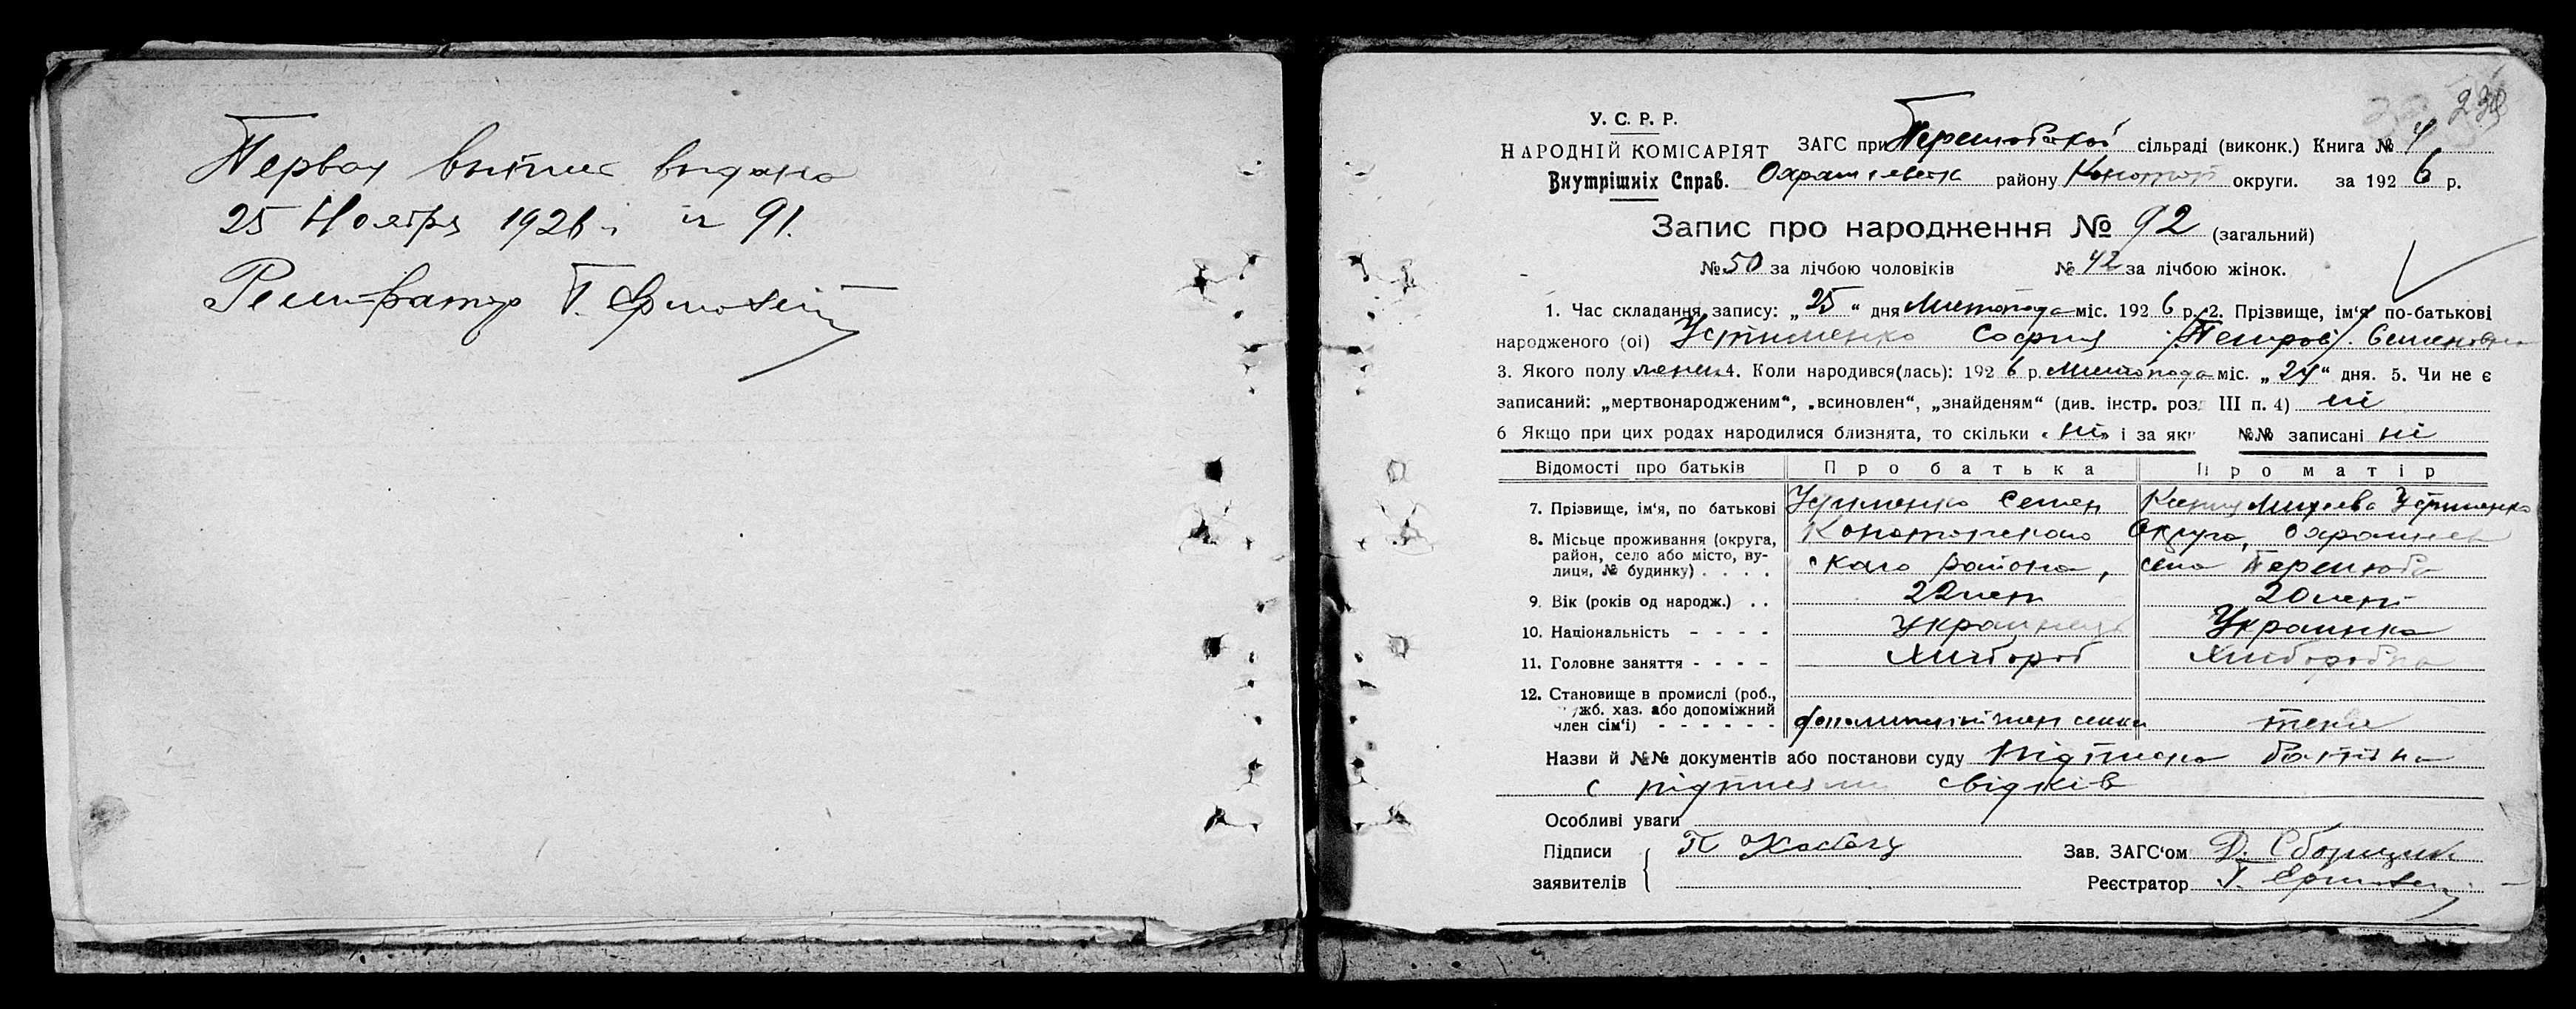 Первая выпись выдана
25 Ноября 1926 г. № 91.
Регистратор Т.
238
У. С. Р. Р.
НАРОДНІЙ КОМІСАРІЯТ
Внутрішніх Справ.
ЗАГС при Перелюбской сільраді (виконк.) Книга № 4
району Конотоп округи. за 1926 р.
Запис про народження № 92 (загальний)
№ 50 за лічбою чоловіків № 42 за лічбою жінок.
1. Час складання запису: „25“ дня Листопада міс. 1926 р. 2. Прізвище, ім‘я по-батькові
народженого (ої) Устименко София Семеновна
3. Якого полу женск 4. Коли народився(лась): 1926 р. Листопада міс. „24“ дня. 5. Чи не є
записаний: „мертвонародженим“, „всиновлен“, „знайденям“ (див. інстр. роз. III п. 4) ні
6 Якщо при цих родах народилися близнята, то скільки «ні» і за як №№ записані ні
Відомості про батьків Про батька Про матір
7. Прізвище, ім‘я, по батькові Устименко Семен Устименко
8. Місьце проживання (округа, район, село або місто, вулиця, № будинку) . . . . Конотопского Округа,
ского района, села Перелюба
9. Вік (років од народж.) . . 22 лет 20 лет
10. Національність - - - - Украинець Украинка
11. Головне заняття - - - - Хлибороб Хлиборобка
12. Становище в промислі (роб.,
жб. хаз. або допоміжний
член сім‘ї) - - - - - - член семьи тоже
Назви й №№ документів або постанови суду Підписка батька
с підписями свідків
Особливі уваги
Підписи заявителів П
Зав. ЗАГС‘ом Д. Сборщик
Реєстратор Т.